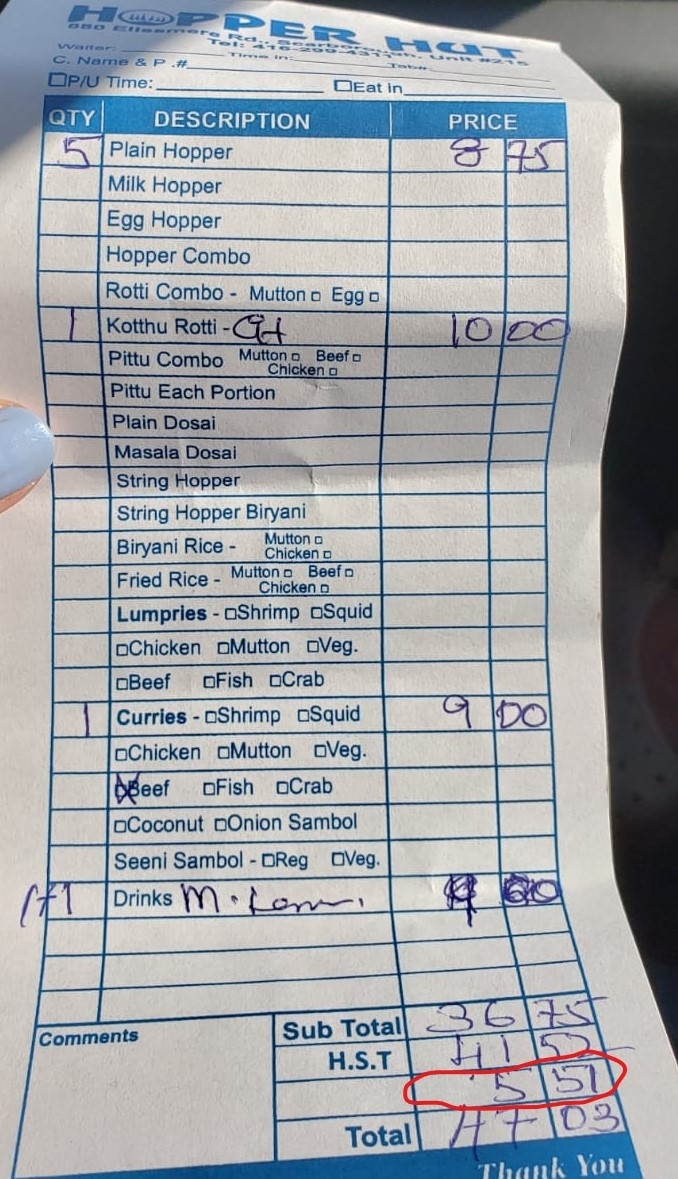 HOPPER HUT
880 Ellesmere Rd., Scarborough, Unit #215
Tel: 416-299-4311
Waiter: Time in: Tab#:
C. Name & P.#
□P/U Time: □Eat in
QTY DESCRIPTION PRICE
5 Plain Hopper 8 75
Milk Hopper
Egg Hopper
Hopper Combo
Rotti Combo - Mutton □ Egg □
1 Kotthu Rotti - 10 00
Pittu Combo Mutton □ Beef □
Chicken □
Pittu Each Portion
Plain Dosai
Masala Dosai
String Hopper
String Hopper Biryani
Biryani Rice - Mutton □
Chicken □
Fried Rice - Mutton □ Beef □
Chicken □
Lumpries - □Shrimp □Squid
□Chicken □Mutton □Veg.
□Beef □Fish □Crab
1 Curries - □Shrimp □Squid 9 00
□Chicken □Mutton □Veg.
□Beef □Fish □Crab
□Coconut □Onion Sambol
Seeni Sambol - □Reg □Veg.
1+1 Drinks
Comments
Sub Total 36 75
H.S.T 41 52
5 51
Total 47 03
Thank You